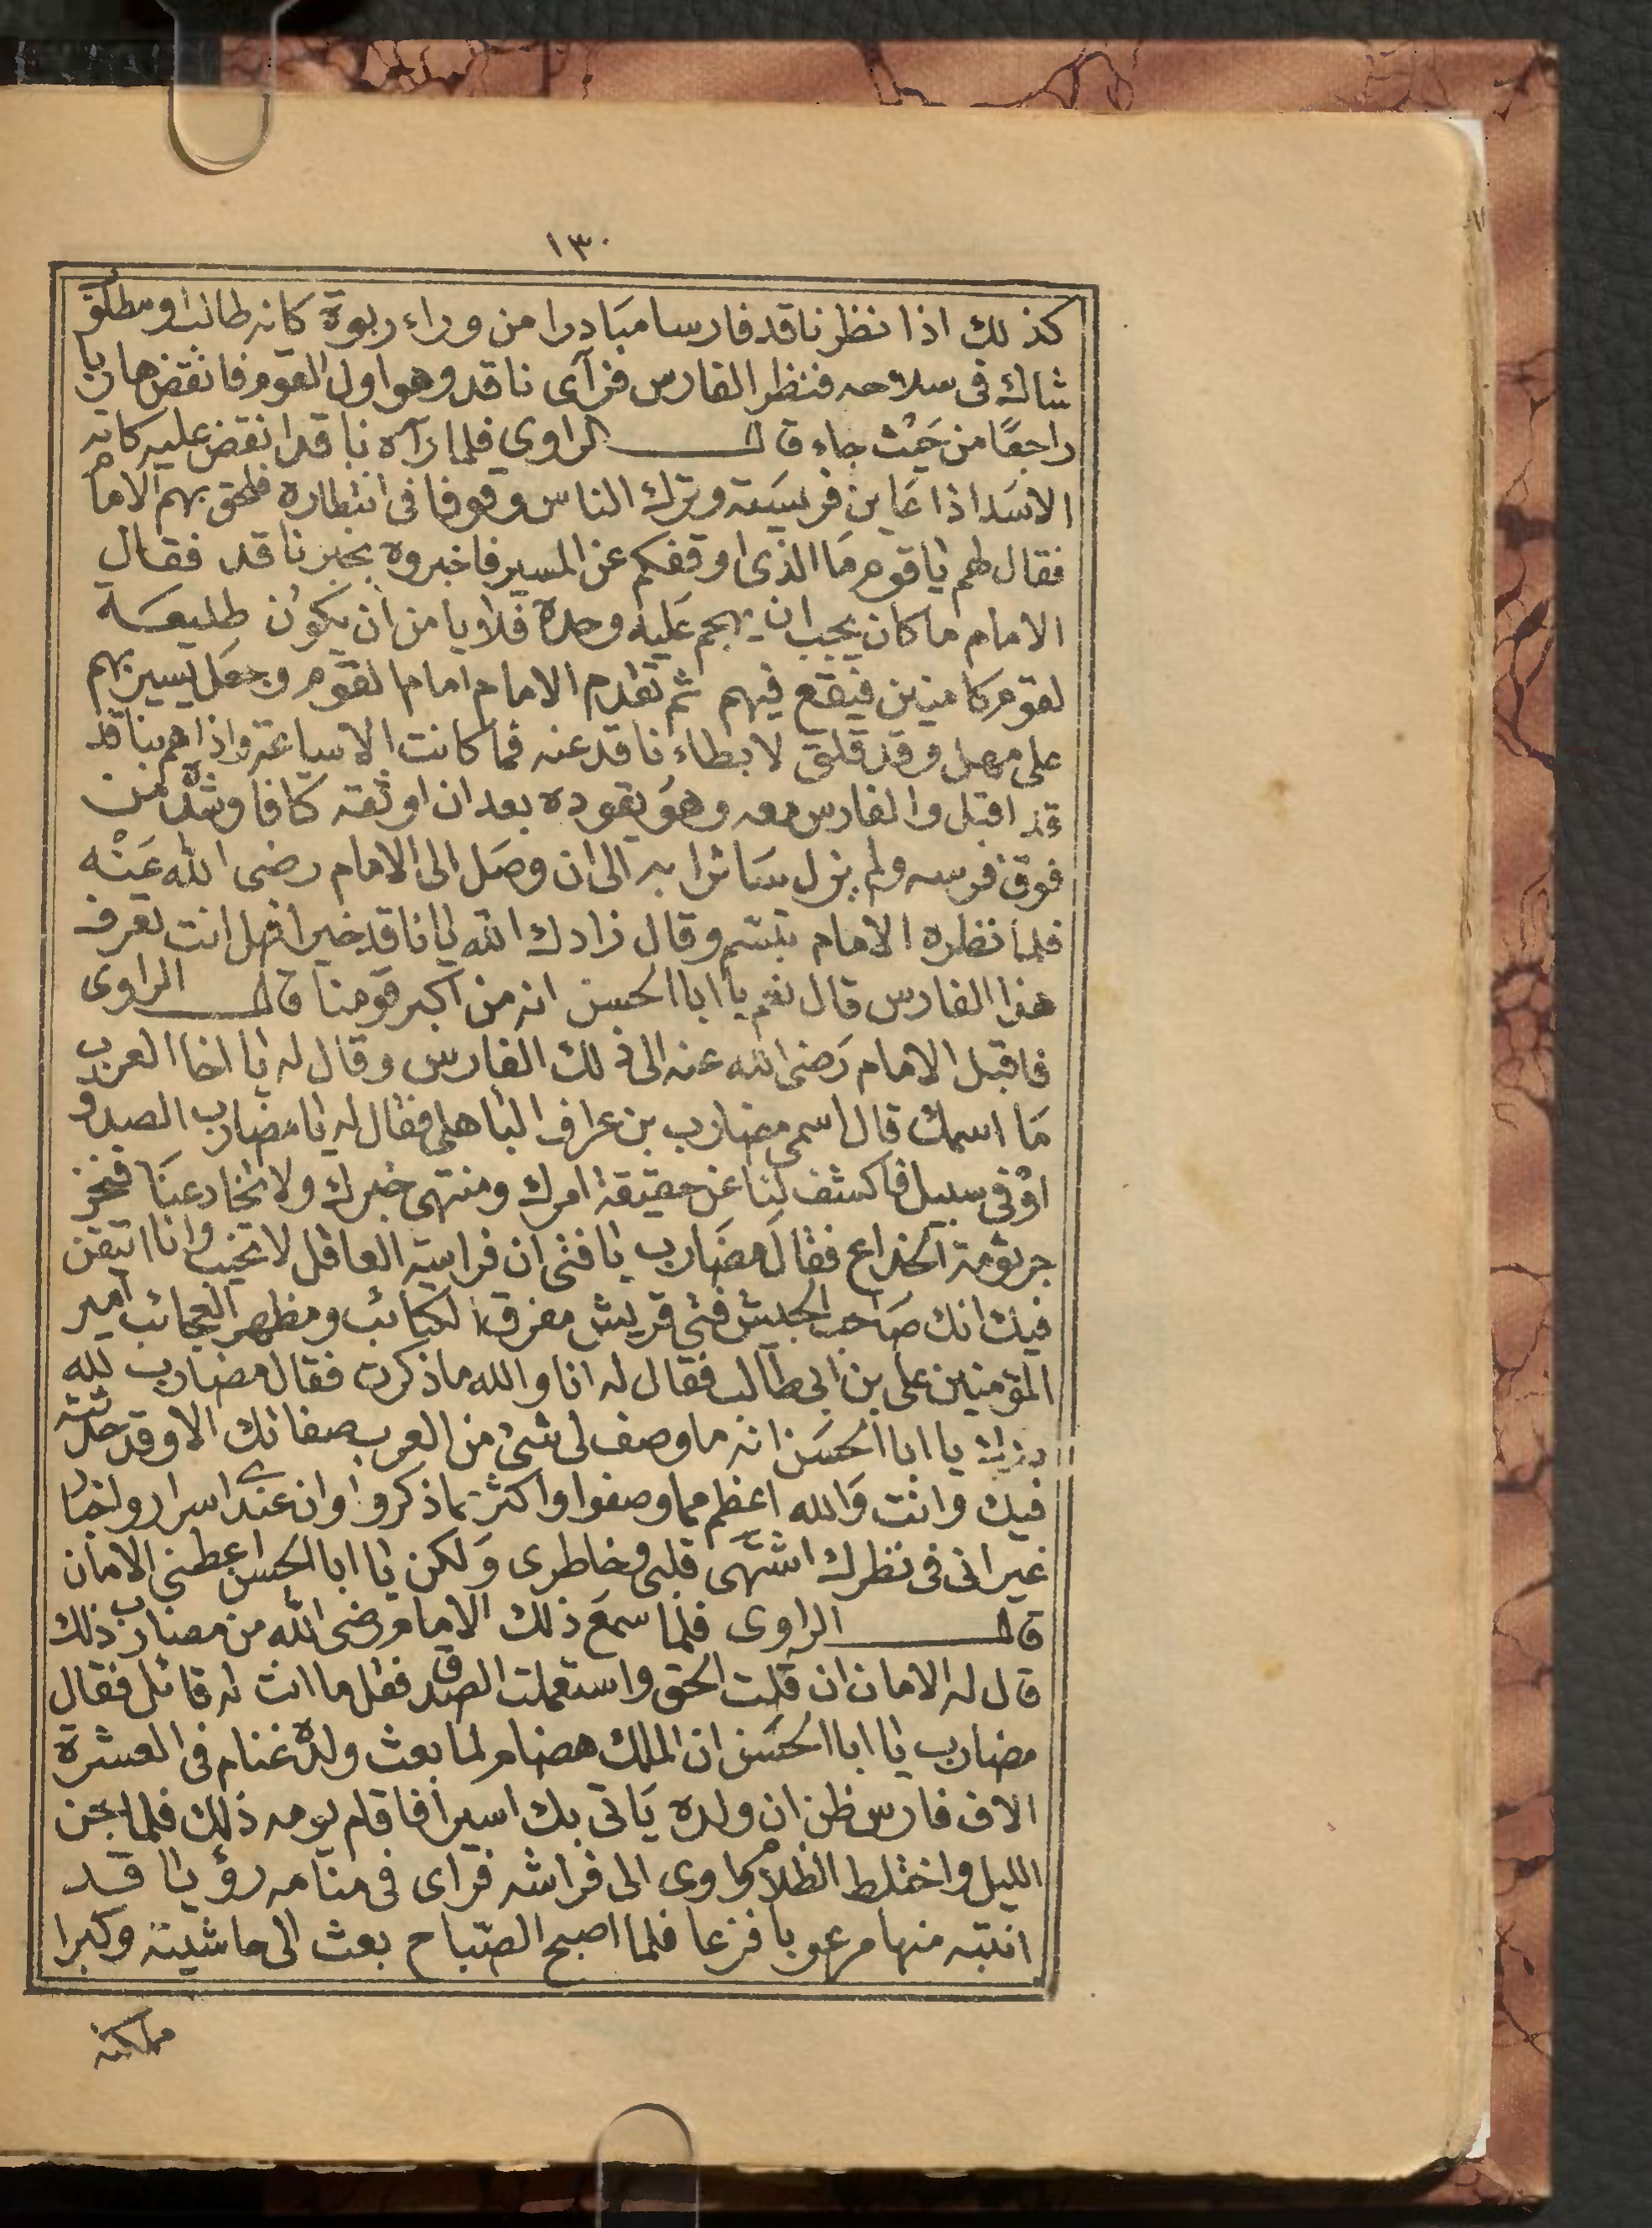 ١٣٠
كذلك اذا نظر ناقد فارسا مبادرا من وراء ربوة كانه طالب او مطلوب
شاك فى سلاحه فنظر الفارس فرآى ناقد وهو اول القوم فانقض هاربا
راجعًا من حَيْث جاء قال الراوي فلما رآه ناقد انقض عليه كانه
الاسَد اذا عَاين فريسَته وترك الناس وقوفا فى انتظاره فلحق بهم الامام
فقال لهم يا قوم مَا الذى اوقفكم عن المسير فاخبروه بخبر ناقد فقال
الامام ما كان يجب ان يهجم عَليه وحده فلا يا من أن يكوُن طليعـة
لقوم كامنين فيقع فيهم ثم تقدم الامام امام القوم وجعَل يسير بهم
على مهل وقد قلق لابطاء ناقد عنه فما كانت الا ساعة واذا هم بناقد
قد اقبل والفارس معه وهوَ يقوده بعد ان اوثقه كتافا وشده من
فوق فرسه ولم يزل سَائرا به الى ان وصَل الى الامام رضى الله عَنْه
فلما نظره الامام تبسّم وقال زادك الله يا ناقد خيرا فهل انت تعرف
هذا الفارس قال نعم يا ابا الحسن انه من اكبر قومنا قال الراوى
فاقبل الامام رَضى الله عنه الى ذلك الفارس وقال له يا اخا العرب
مَا اسمك قال اسمى مضارب بن عراف الباهلى فقال له يا مضارب الصدق
اوْفى سبيل فاكشف لنا عن حقيقة امرك ومنتهى خبرك ولا تخادعنَا فنحن
جرثومة الخداع فقالَ مضَارب يا فتى ان فراسة العاقل لا تخيب وانا اتيقن
فيك انك صَاحب الجيش فتى قريش مفرق الكتائب ومظهر العجائب امير
المؤمنين على بن ابى طالب فقال له انا والله ما ذكرت فقال مضارب لله
درك يا ابا الحسَن انه ما وصف لى شئ من العرب صفاتك الا وقد حلت
فيك وانت وَالله اعظم مما وصفوا واكثر مما ذكروا وان عندى اسرار واخبار
غير انى فى نظرك اشتهى قلبى وخاطرى وَلكن يا ابا الحسن اعطنى الامان
قال الراوى فلما سمعَ ذلك الامام رضى الله من مضارب ذلك
قال له الامان ان قلت الحق واستعملت الصدق فقل ما انت له قائل فقال
مضارب يا ابا الحسَن ان الملك هضام لما بعث ولده غنام فى العشرة
الاف فارس ظن ان ولده يَاتى بك اسيرا فاقام يومه ذلك فلما جن
الليل واختلط الظلام واوى الى فراشه فراى فى منامه رؤيا قـد
انتبه منها مرعوبا فزعا فلما اصبح الصّباح بعث الى حاشيته وكبرا
مملكته